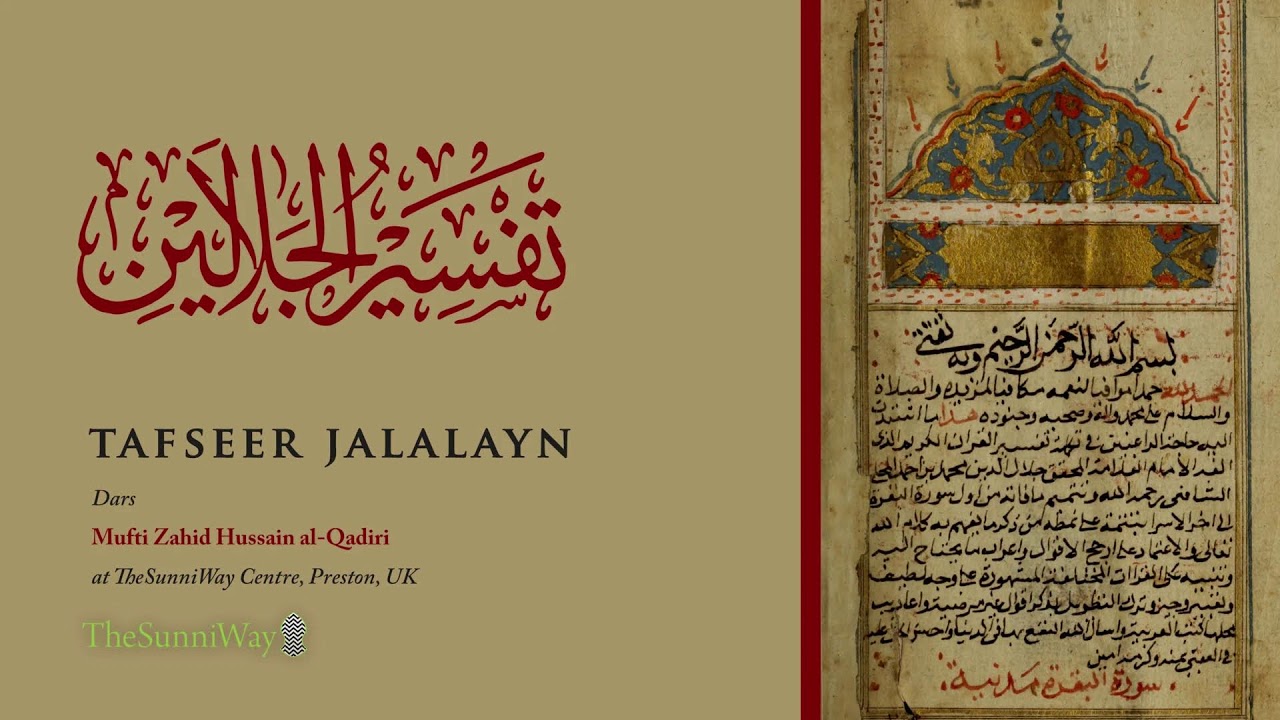 تَفْسِيرُ الجَلَالَيْنِ
TAFSEER JALALAYN
Dars
Mufti Zahid Hussain al-Qadiri
at TheSunniWay Centre, Preston, UK
TheSunniWay
بسم الله الرحمن الرحيم وبه ثقتي
الحمد لله حمدا موافيا لنعمه مكافيا لمزيده والصلاة
والسلام على محمد واله وصحبه وجنوده هذا ما اشتدت
اليه حاجة الراغبين في تفسير القران الكريم الذي
الفه الامام العلامة المحقق جلال الدين محمد بن احمد المحلي
الشافعي رحمه الله وتتميم ما فاته من اول سورة البقرة
الى اخر الاسرا بتتمة على نمطه من ذكر ما يفهم به كلام الله
تعالى والاعتماد على ارجح الاقوال واعراب ما يحتاج اليه
وتنبيه على القراات المختلفة المشهورة على وجه لطيف
وتعبير وجيز وترك التطويل بذكر اقوال غير مرضية واعاريب
محلها كتب العربية واسال الله النفع به في الدنيا واحسن
في العقبى بمنه وكرمه امين
سورة البقرة مدنية